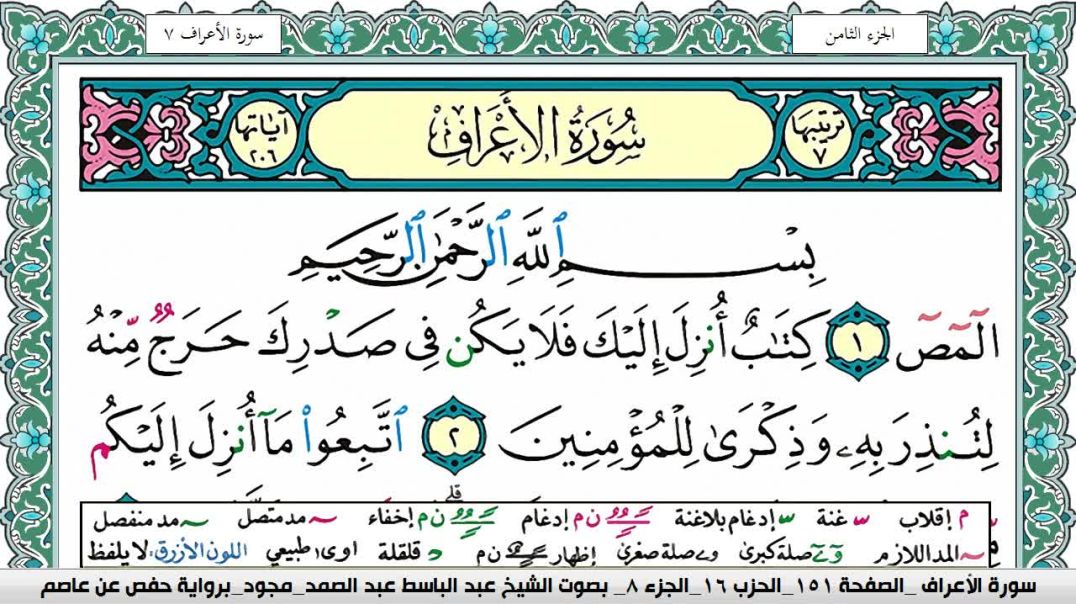 الجزء الثامن
سورة الأعراف ٧
ترتيبها ٧
سُورَةُ الأَعْرَافِ
آياتها ٢٠٦
بِسْمِ ٱللَّهِ ٱلرَّحْمَٰنِ ٱلرَّحِيمِ
الٓمٓصٓ ١ كِتَٰبٌ أُنزِلَ إِلَيْكَ فَلَا يَكُن فِى صَدْرِكَ حَرَجٌ مِّنْهُ
لِتُنذِرَ بِهِۦ وَذِكْرَىٰ لِلْمُؤْمِنِينَ ٢ ٱتَّبِعُوا۟ مَآ أُنزِلَ إِلَيْكُم
م إقلاب غنة إدغام بلاغنة ن م إدغام ن م إخفاء مد متصل مد منفصل
المد اللازم صلة كبرى صلة صغرى إظهار ن م قلقلة اوى طبيعي اللون الأزرق: لا يلفظ
سورة الأعراف _الصفحة ١٥١_الحزب ١٦_الجزء ٨_ بصوت الشيخ عبد الباسط عبد الصمد_مجود_برواية حفص عن عاصم